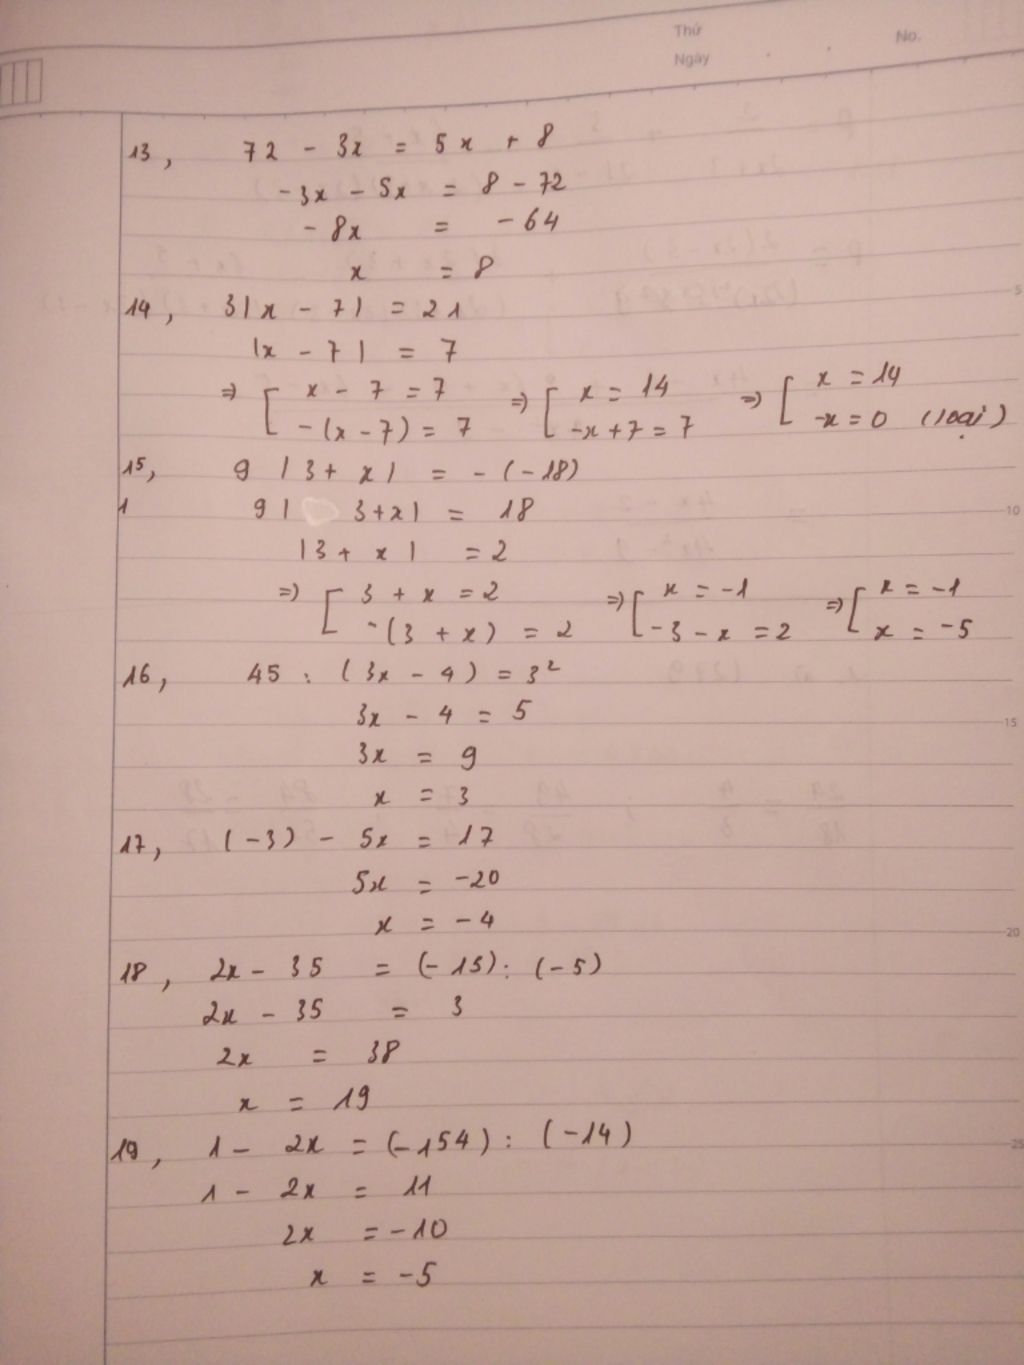 Thứ
Ngày
No.
13, 72 - 3x = 5x + 8
-3x - 5x = 8 - 72
- 8x = - 64
x = 8
14, 3|x - 7| = 21
|x - 7| = 7
=> [ x - 7 = 7 => [ x = 14 => [ x = 14
-(x - 7) = 7 -x + 7 = 7 -x = 0 (loại)
15, 9 |3 + x| = - (-18)
1 9| 3+x| = 18
|3 + x| = 2
=> [ 3 + x = 2 => [ x = -1 => [ x = -1
-(3 + x) = 2 -3 - x = 2 x = -5
16, 45 : (3x - 4) = 3²
3x - 4 = 5
3x = 9
x = 3
17, (-3) - 5x = 17
5x = -20
x = -4
18, 2x - 35 = (-15) : (-5)
2x - 35 = 3
2x = 38
x = 19
19, 1 - 2x = (-154) : (-14)
1 - 2x = 11
2x = -10
x = -5
5
10
15
20
25